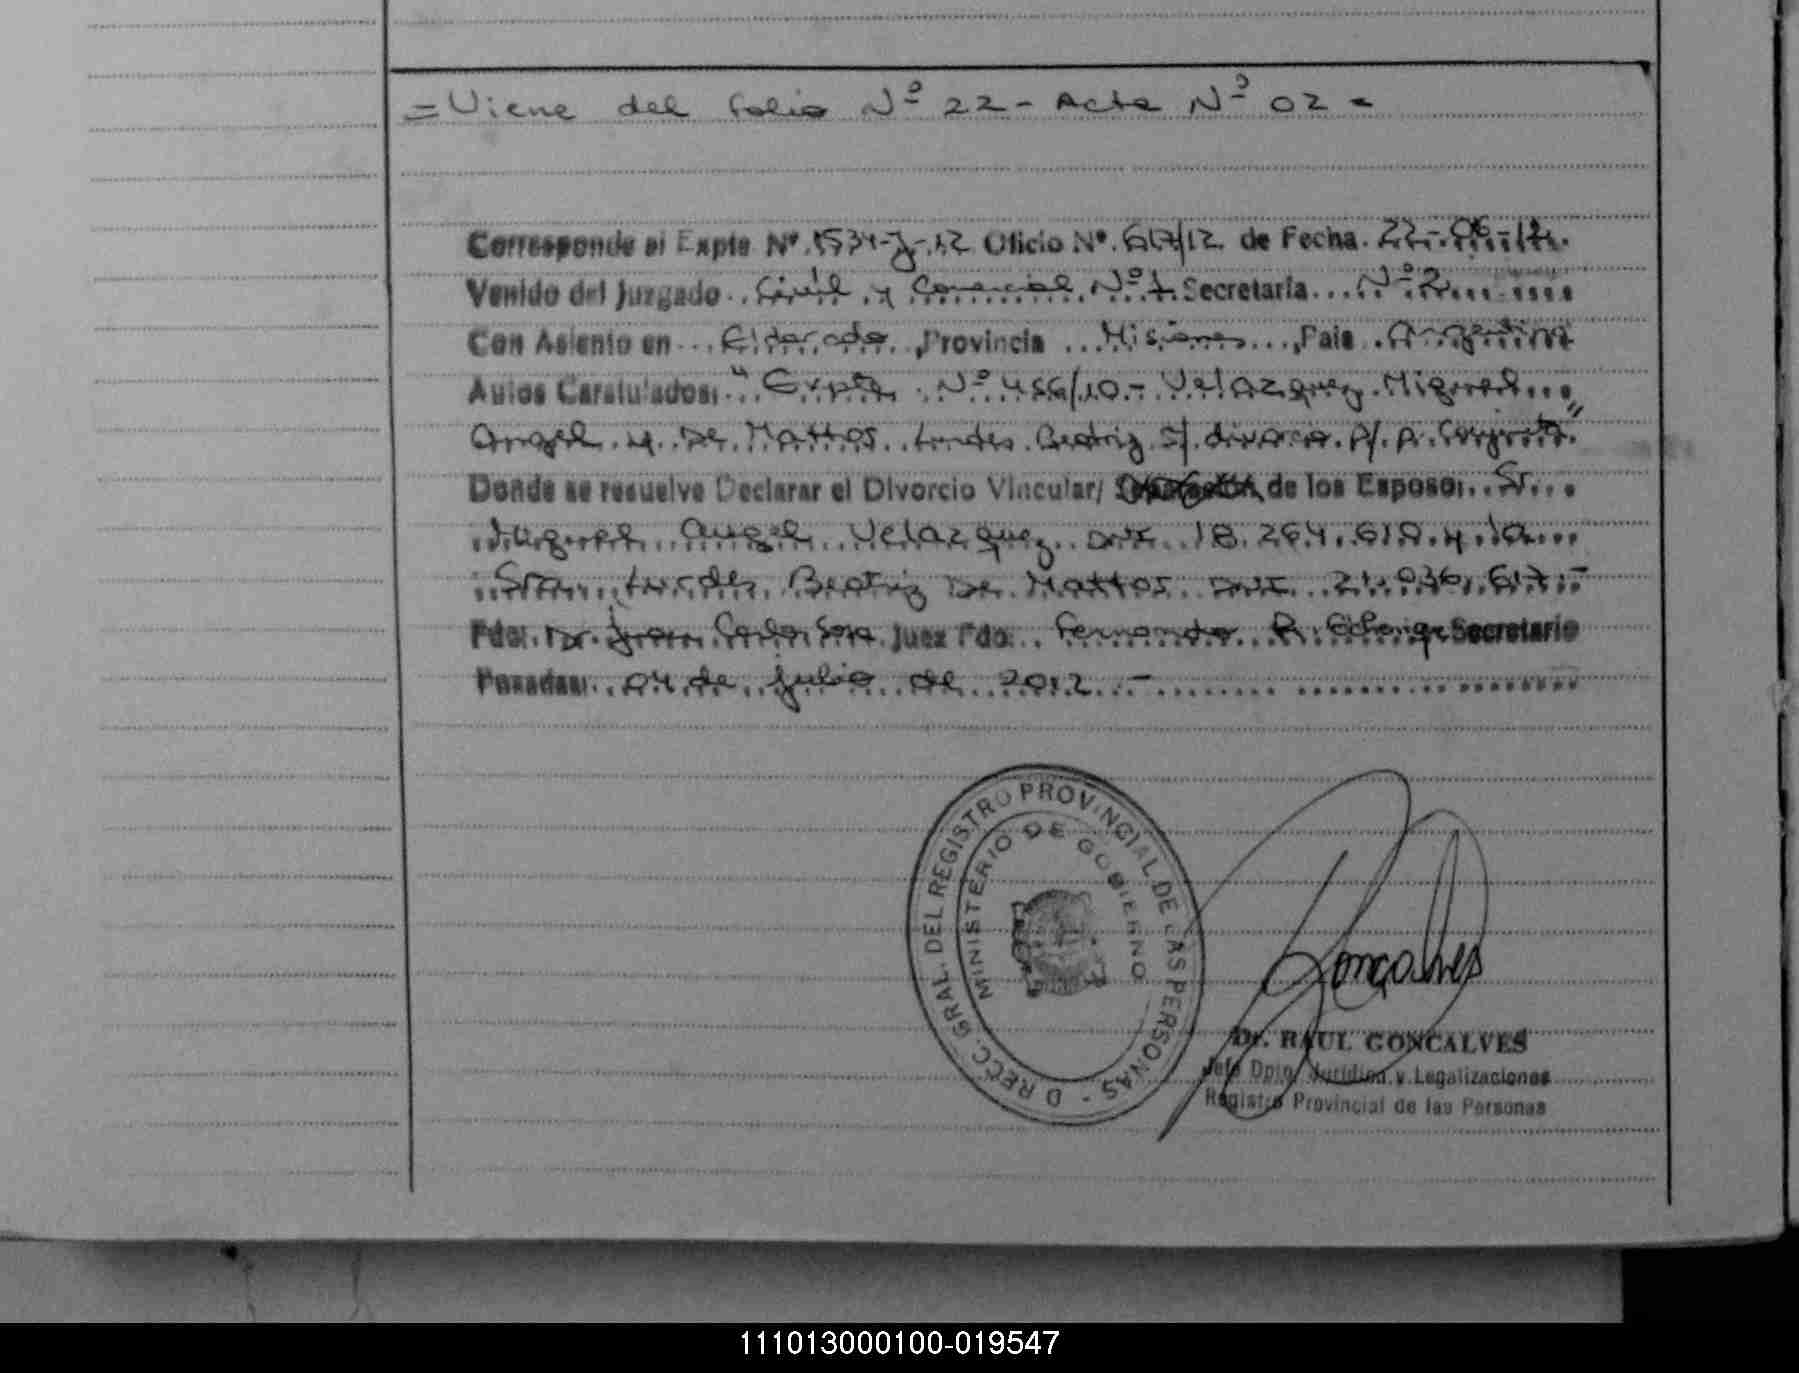 = Viene del folio Nº 22 - Acta Nº 02 =
Corresponde al Expte Nº. 1534-J-12 Oficio Nº. 617/12 de Fecha. 22-06-12.
Venido del Juzgado.. Civil y Comercial Nº 1 Secretaría.... Nº 2
Con Asiento en ... Eldorado ,Provincia ... Misiones ...,Pais .. Argentina
Autos Caratulados: " Expte Nº 456/10.- Velazquez Miguel
Angel y De Mattos Lurdes Beatriz S/ divorcio P/ P. Conjunta"
Donde se resuelve Declarar el Divorcio Vincular/ de los Esposos.. Sr.
Miguel Angel Velazquez DNI 18.264.618 y la
Sra. Lurdes Beatriz De Mattos DNI 21.036.617.-
Fdo:. Dr. Juan Carlos Sosa Juez Fdo:.. Fernando R. Secretario
Posadas:.. 04 de julio de 2012.-
DIRECC. GRAL. DEL REGISTRO PROVINCIAL DE LAS PERSONAS -
MINISTERIO DE GOBIERNO
Goncalves
Dr. RAUL GONCALVES
Jefe Dpto. Jurídica y Legalizaciones
Registro Provincial de las Personas
111013000100-019547